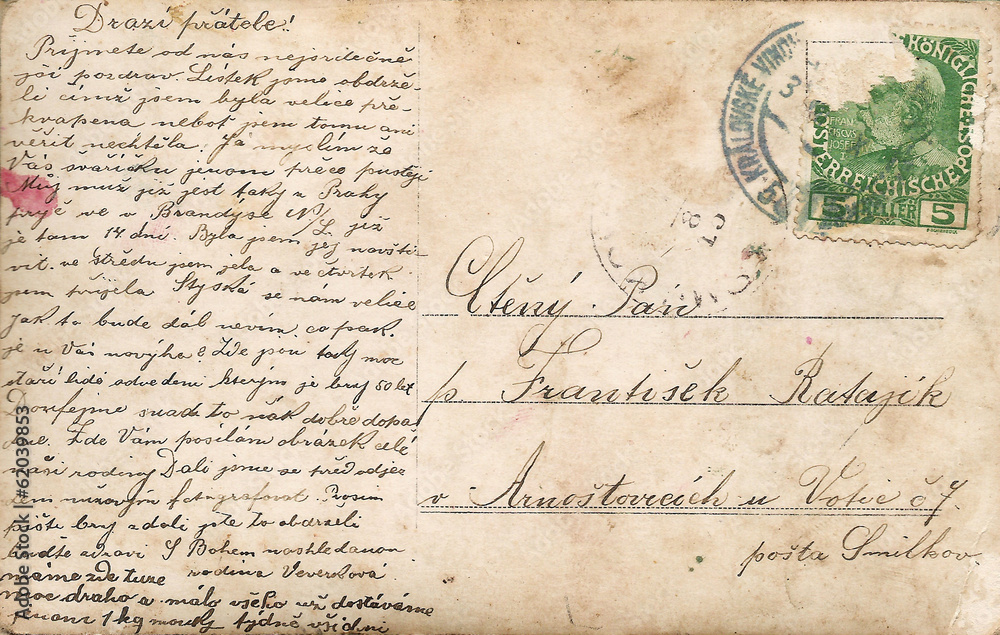 Drazí přátele!
Prijmete od nás nejsrdečně
jší pozdrav. Lístek jsme obdrže-
li čímž jsem byla velice pře-
kvapena neboť jsem tomu ani
věřit nechtěla. Já myslím že
Vás jenom přece pustěji
Můj muž již jest taky z Prahy
pryč ve v Brandýse N/L. již
je tam 14 dní. Byla jsem jej navští-
vit. ve středu jsem jela a ve čtvrtek
jsem přijela Stýská se nám velice
Jak to bude dál nevím copak
je u Vás nového? Zde jsou taky moc
staří lidé odvedeni kterým je brzy 50 let
Doufejme snad to nák dobře dopa
dne. Zde Vám posílám obrázek celé
naši rodiny Dali jsme se před odjez
dem fotografovat. Prosím
pište brzy zdali jste to obdrželi
buďte zdravi S Bohem nashledanou
máme zde tuze rodina Veverková
moc draho a málo všeho už dostáváme
jenom 1 kg mouky týdně všichni
Ctěný Pán
p. František Ratajík
v Arnoštovicích u Votic č 7.
pošta Smilkov
KRÁLOVSKÉ VINOH
KÖNIGLICHE POST
ÖSTERREICHISCHE
FRAN
CISCUS
JOSEF
I
5 HELLER 5
Adobe Stock | #62039853